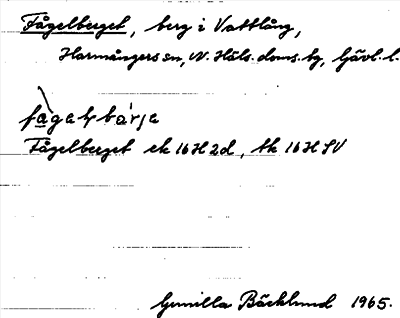 Fågelberget, berg i Vattlång,
Harmångers sn, N. Häls. doms. bg, Gävl. l.
Fågelberget ek 16H2d, tk 16H SV
Gunilla Bäcklund 1965.